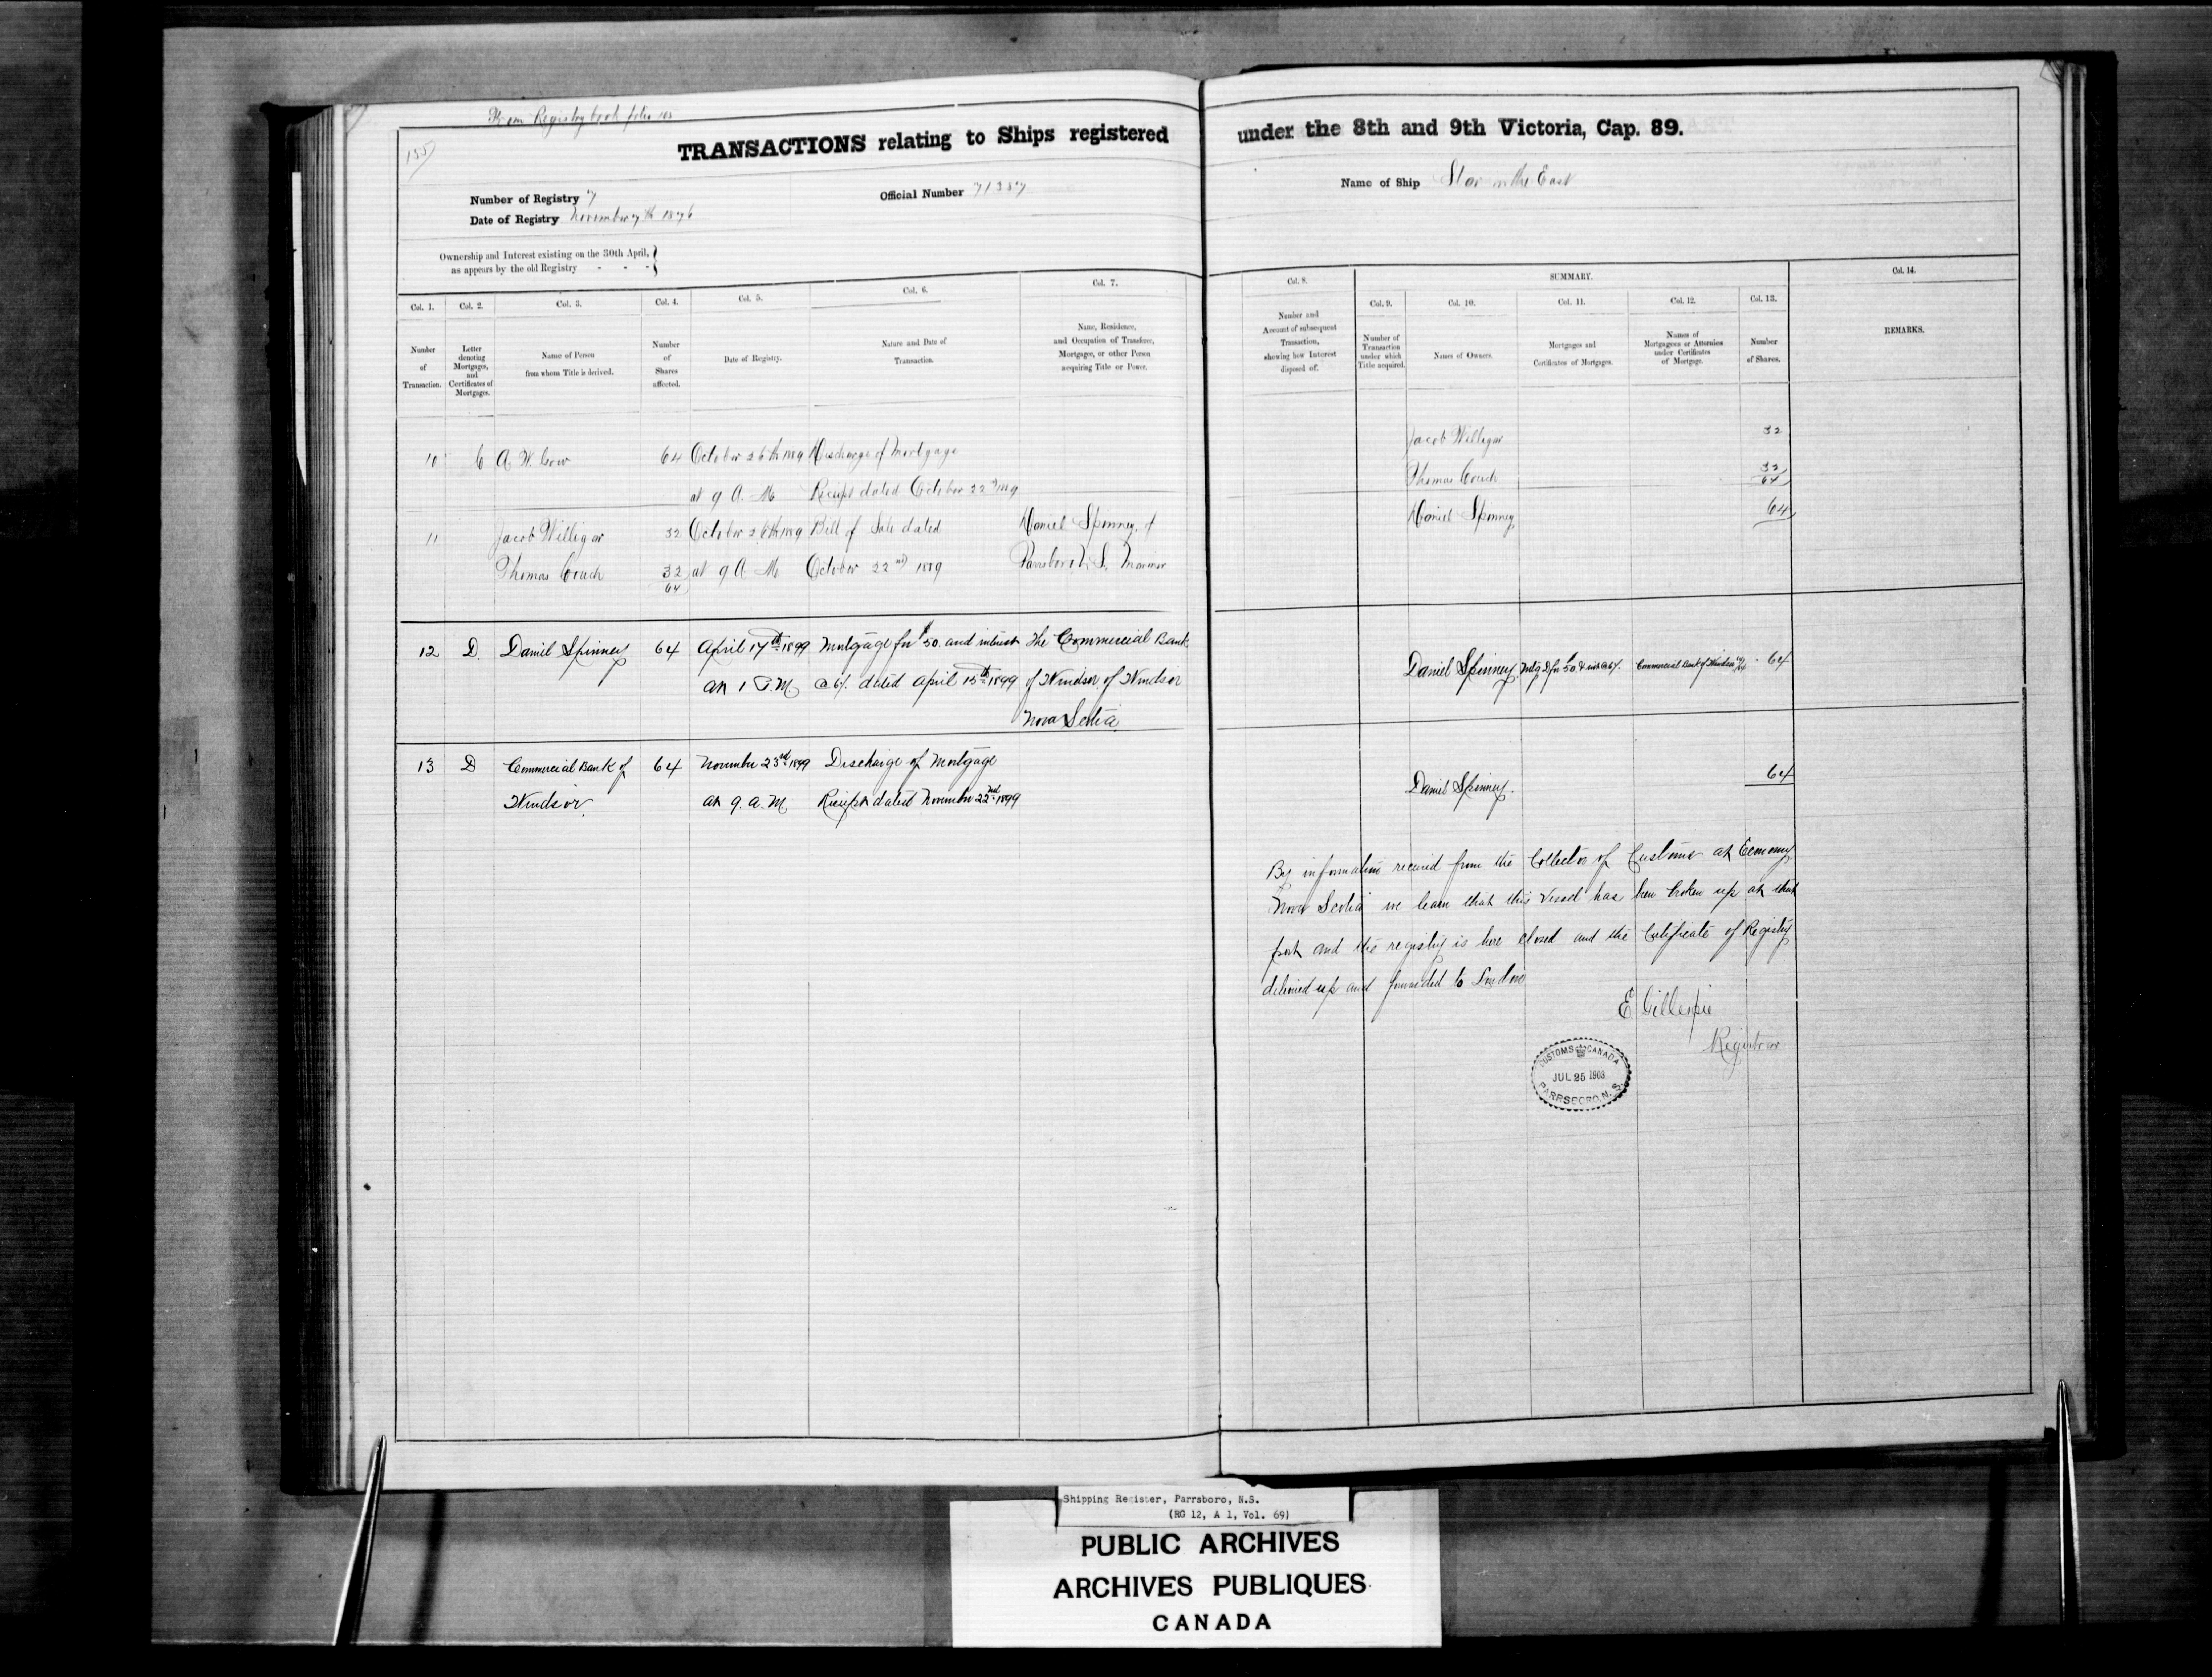 From Registry book folio 103
155
TRANSACTIONS relating to Ships registered under the 8th and 9th Victoria, Cap. 89.
Number of Registry 7
Official Number 71387
Name of Ship Star in the East
Date of Registry November 7th 1876
Ownership and Interest existing on the 30th April,
as appears by the old Registry - - -
SUMMARY.
Col. 1. Col. 2. Col. 3. Col. 4. Col. 5. Col. 6. Col. 7. Col. 8. Col. 9. Col. 10. Col. 11. Col. 12. Col. 13. Col. 14.
Number
of
Transaction.
Letter
denoting
Mortgages,
and
Certificates of
Mortgages.
Name of Person
from whom Title is derived.
Number
of
Shares
affected.
Date of Registry.
Nature and Date of
Transaction.
Name, Residence,
and Occupation of Transferee,
Mortgagee, or other Person
acquiring Title or Power.
Number and
Account of subsequent
Transaction,
showing how Interest
disposed of.
Number of
Transaction
under which
Title acquired.
Names of Owners.
Mortgages and
Certificates of Mortgages.
Names of
Mortgagees or Attornies
under Certificates
of Mortgage.
Number
of Shares.
REMARKS.
10 C A. W. 64 October 26th Discharge of Mortgage
at 9 A. M. Receipt dated October 22nd
Jacob Willigar 32
Thomas Couch 32
64
11 Jacob Willigar 32 October 26th Bill of Sale dated Daniel Spinney, of
Thomas Couch 32 at 9 A. M. October 22nd Parrsboro N. S. Mariner
64
Daniel Spinney 64
12 D. Daniel Spinney 64 April 17th 1899 Mortgage for $50. and interest The Commercial Bank
at 1 P.M. @ 6%. dated April 15th 1899 of Windsor of Windsor
Nova Scotia
Daniel Spinney. Mtg D for 50 & int @ 6%. Commercial Bank of Windsor 64
13 D Commercial Bank of 64 November 23rd 1899 Discharge of Mortgage
Windsor at 9. a. M. Receipt dated November 22nd 1899
Daniel Spinney. 64
By information received from the Collector of Customs at Economy
Nova Scotia we learn that this Vessel has been broken up at that
port and the registry is here closed and the Certificate of Registry
delivered up and forwarded to London
E Gillespie
Registrar
CUSTOMS CANADA
JUL 25 1903
PARRSBORO, N. S.
Shipping Register, Parrsboro, N.S.
(RG 12, A 1, Vol. 69)
PUBLIC ARCHIVES
ARCHIVES PUBLIQUES
CANADA